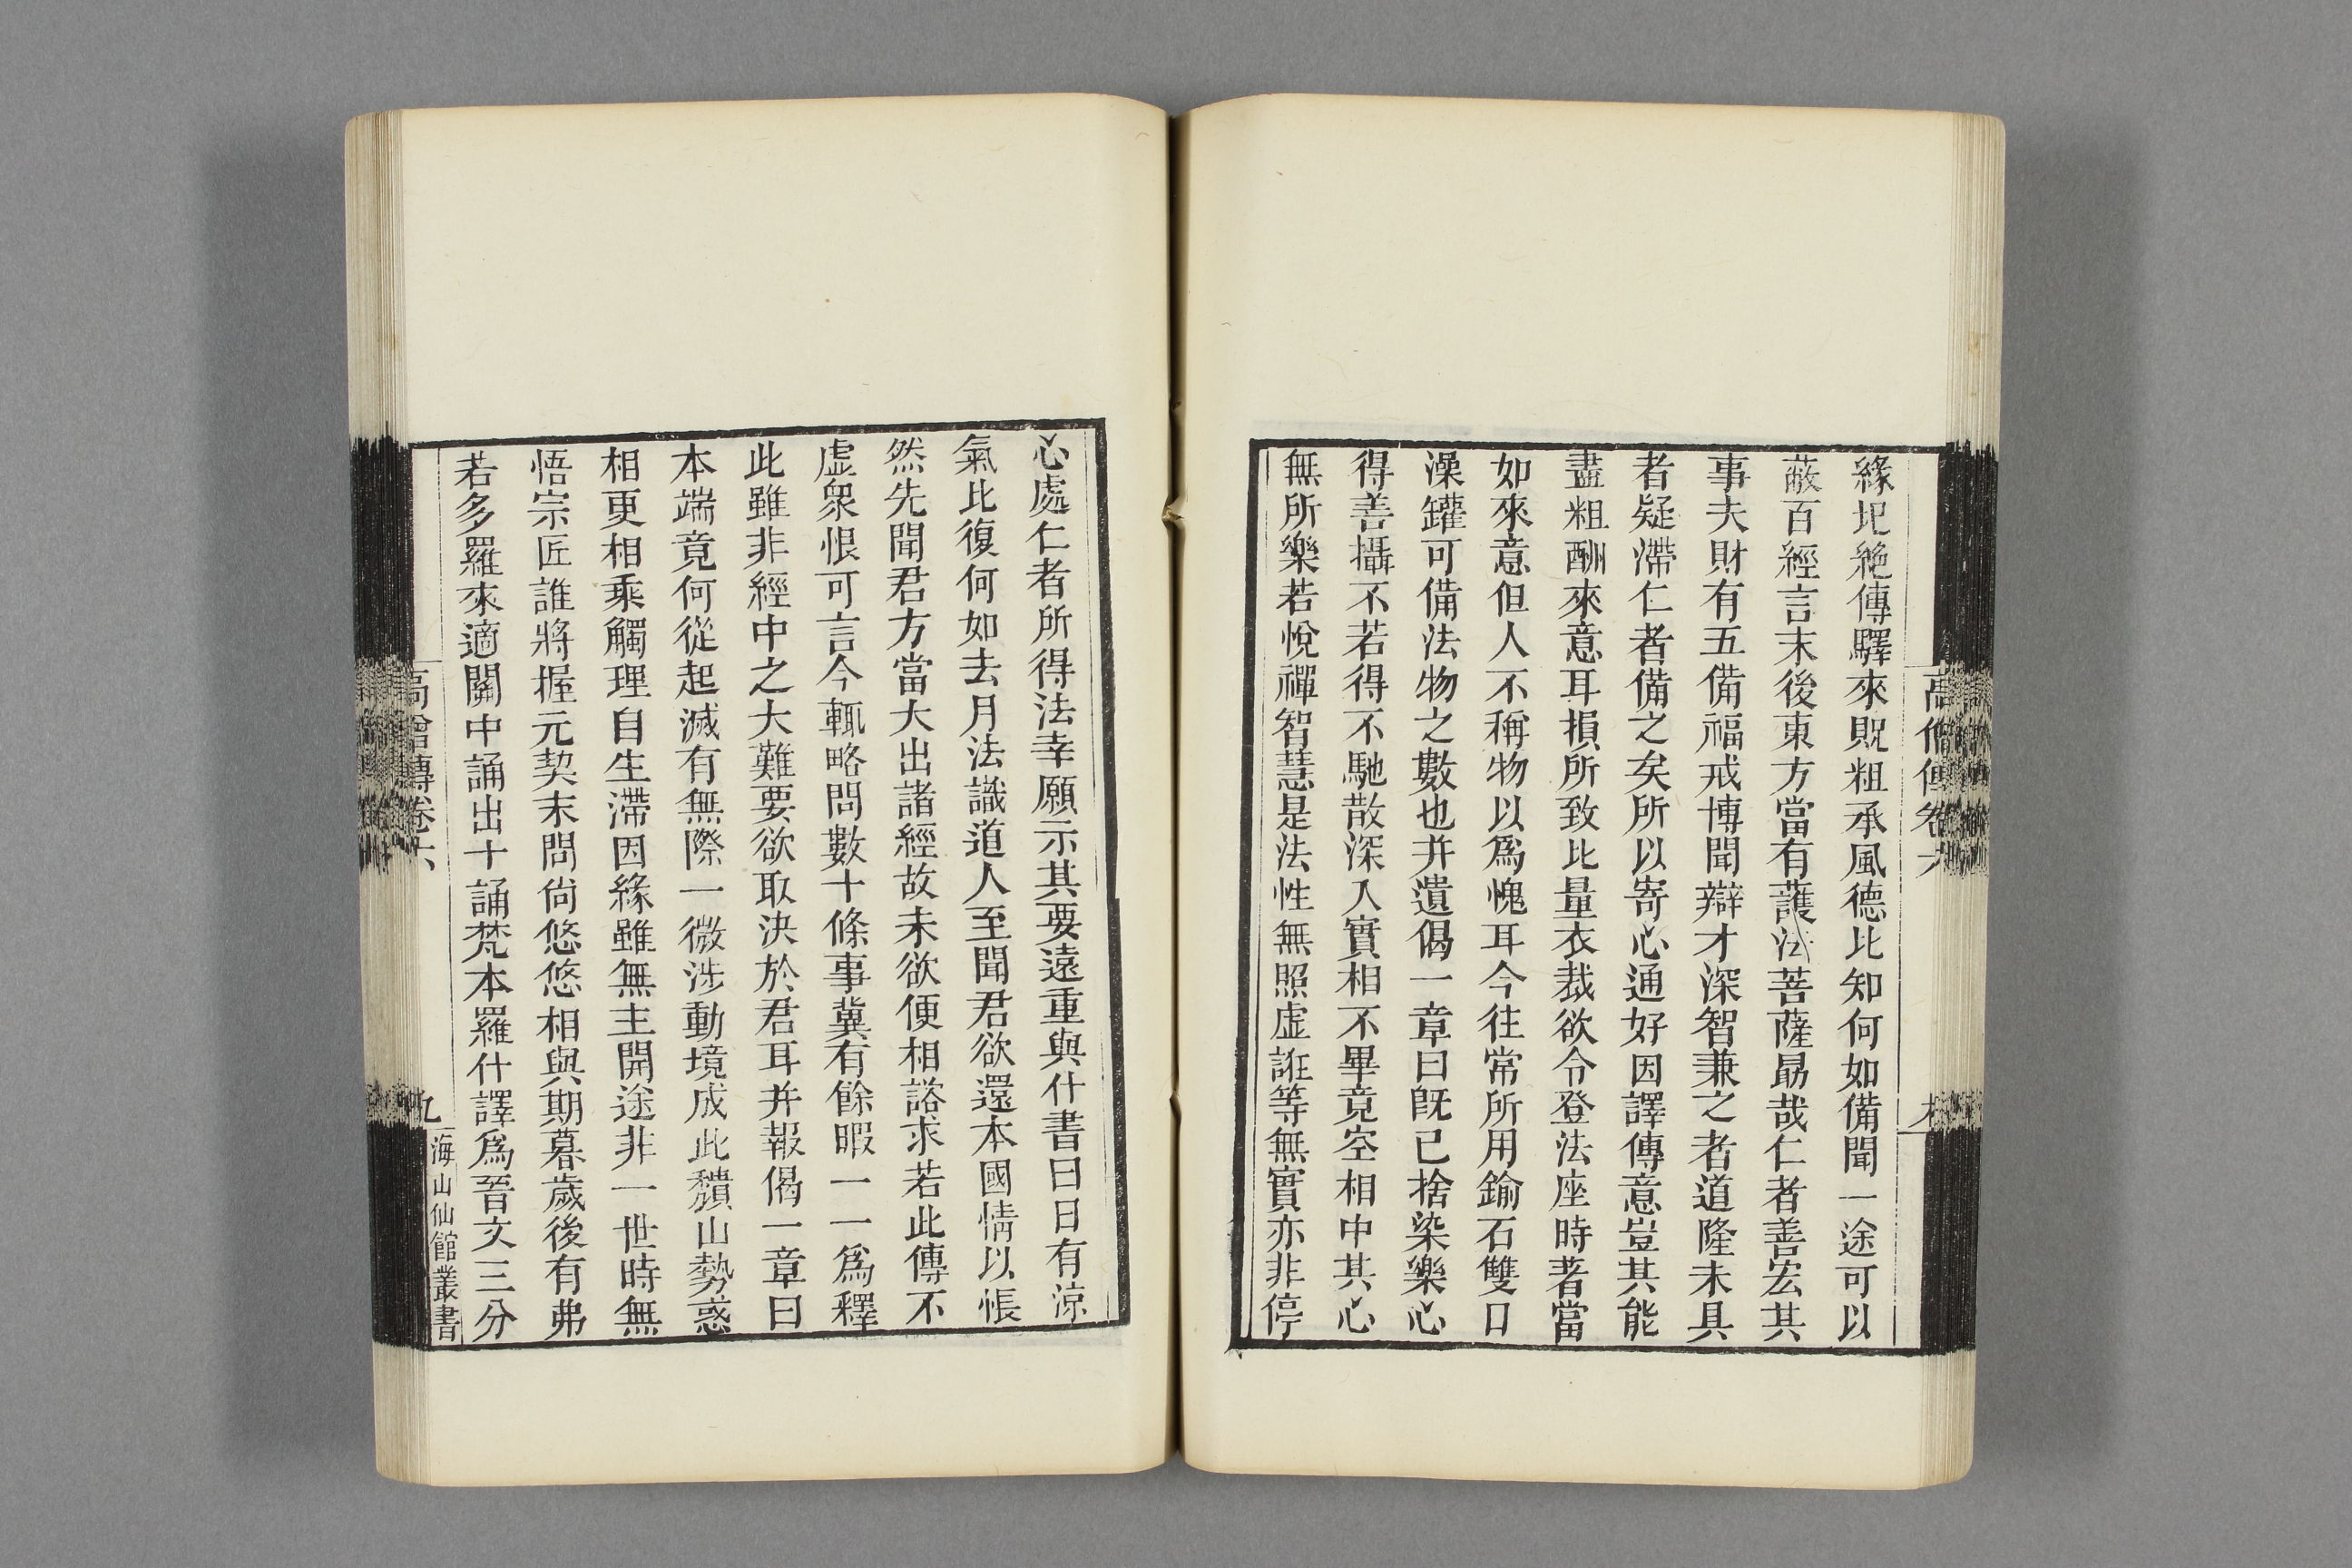 緣圯絶傳驛來貺粗承風德比知何如備聞一途可以
蔽百經言末後東方當有護法菩薩勗哉仁者善宏其
事夫財有五備福戒博聞辯才深智兼之者道隆未具
者疑滯仁者備之矣所以寄心通好因譯傳意豈其能
盡粗酬來意耳損所致比量衣裁欲令登法座時著當
如來意但人不稱物以爲愧耳今往常所用鍮石雙口
澡罐可備法物之數也并遺偈一章曰旣已捨染樂心
得善攝不若得不馳散深入實相不畢竟空相中其心
無所樂若悅禪智慧是法性無照虛誑等無實亦非停
心處仁者所得法幸願示其要遠重與什書曰日有涼
氣比復何如去月法識道人至聞君欲還本國情以悵
然先聞君方當大出諸經故未欲便相諮求若此傳不
虛衆恨可言今輒略問數十條事冀有餘暇一一爲釋
此雖非經中之大難要欲取決於君耳并報偈一章曰
本端竟何從起滅有無際一微涉動境成此穨山勢惑
相更相乘觸理自生滯因緣雖無主開途非一世時無
悟宗匠誰將握元契末問尙悠悠相與期暮歲後有弗
若多羅來適關中誦出十誦梵本羅什譯爲晉文三分
高僧傳卷六
九
海山仙館叢書